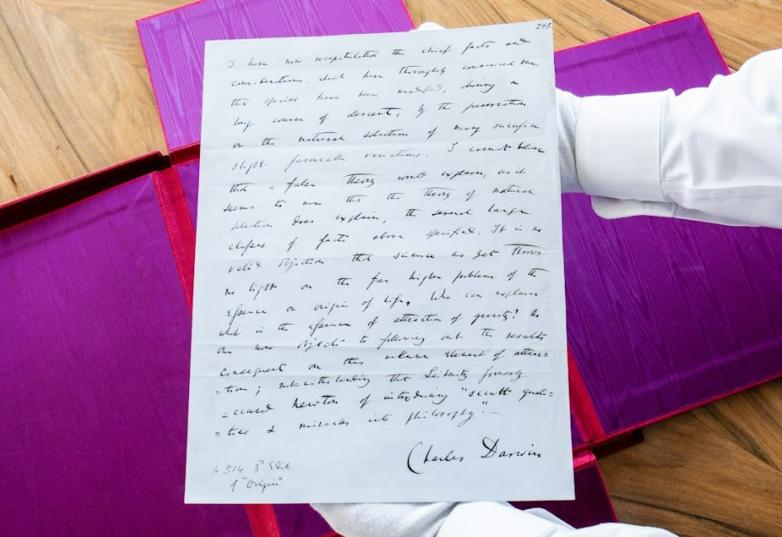 I have now recapitulated the chief facts and
considerations, which have thoroughly convinced me
that species have been modified, during a
long course of descent, by the preservation
or the natural selection of many successive
slight favourable variations. I cannot believe
that a false theory would explain, as it
seems to me that the theory of natural
selection does explain, the several large
classes of facts above specified. It is no
valid objection that science as yet throws
no light on the far higher problem of the
essence or origin of life. Who can explain
what is the essence of attraction of gravity? No
one now objects to following out the results
consequent on this unknown element of attrac=
=tion; notwithstanding that Leibnitz formerly
accused Newton of introducing "occult quali=
=ties & miracles into philosophy."—
Charles Darwin
p 514 3d Edit
of "Origin"